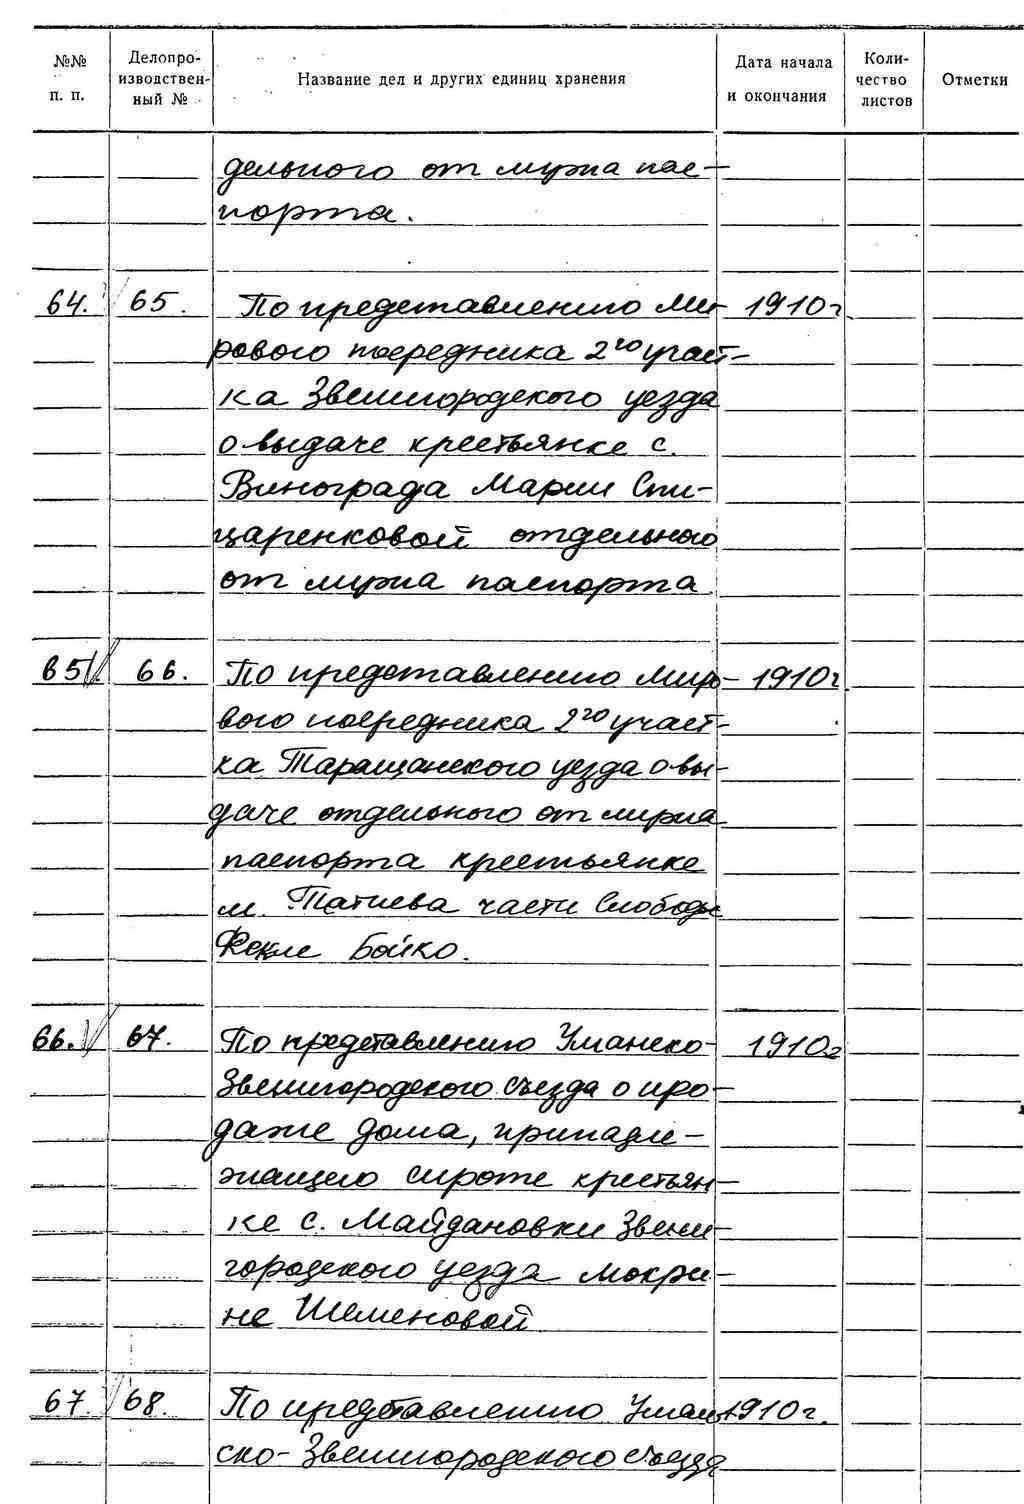 №№ п. п. Делопро- изводствен- ный № Название дел и других единиц хранения Дата начала и окончания Коли- чество листов Отметки
дельного от мужа пас-
порта.
64. 65. По представлению Ми- 1910г.
рового посредника 2го участ-
ка Звенигородского уезда
о выдаче крестьянке с.
Винограда Марии Спи-
царенковой отдельного
от мужа паспорта.
65 66. По представлению Миро- 1910г.
вого посредника 2го участ-
ка Таращанского уезда о вы-
даче отдельного от мужа
паспорта крестьянке
м. Татиева части Слободы
Фекле Бойко.
66. 67. По представлению Уманско- 1910г
Звенигородского съезда о про-
даже дома, принадле-
жащего сироте крестьян-
ке с. Майдановки Звени-
городского уезда Мокри-
не Шеменовой
67. 68. По представлению Уман- 1910г.
ско-Звенигородского съезда